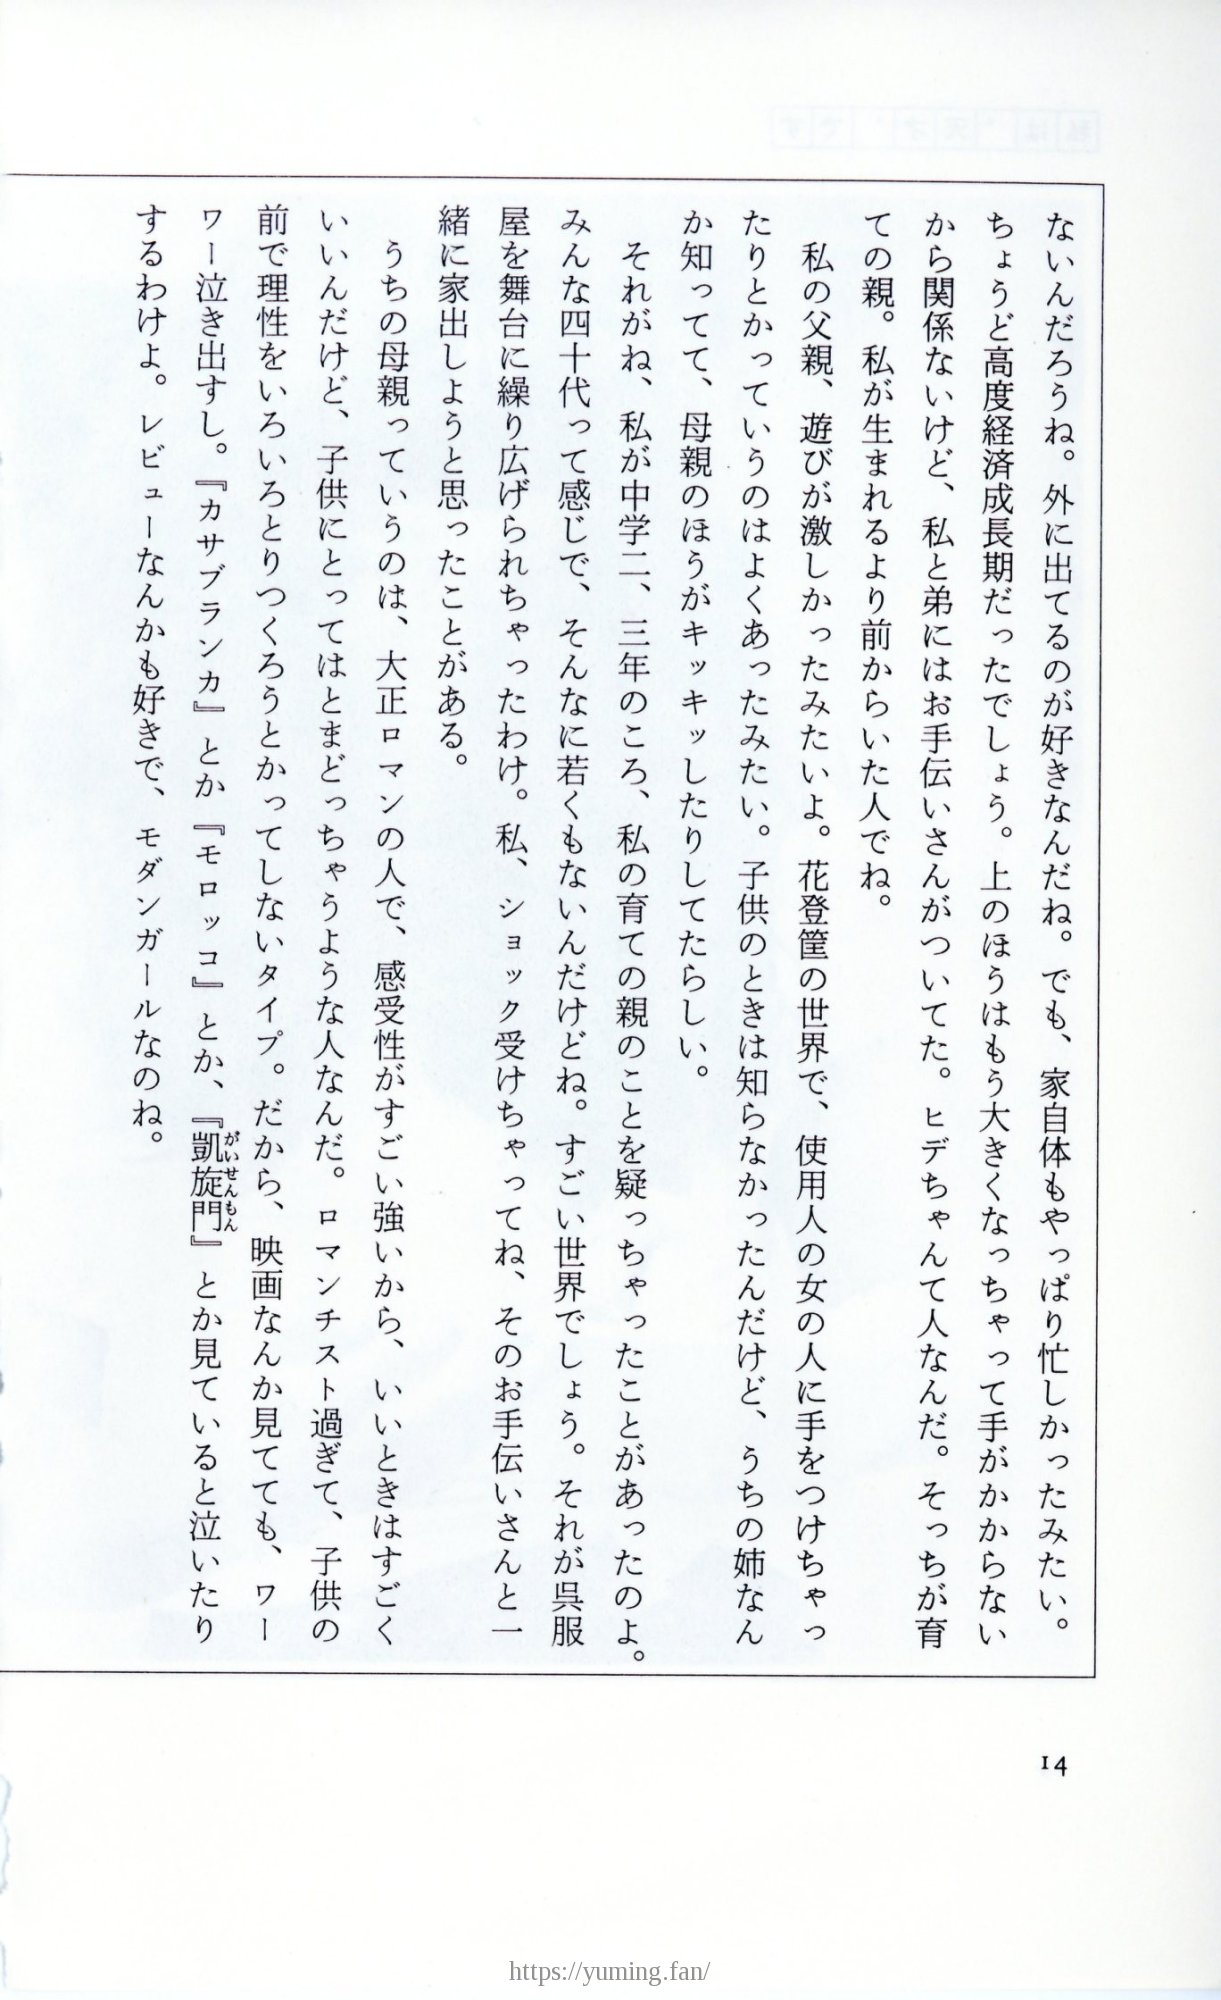 ないんだろうね。外に出てるのが好きなんだね。でも、家自体もやっぱり忙しかったみたい。
ちょうど高度経済成長期だったでしょう。上のほうはもう大きくなっちゃって手がかからない
から関係ないけど、私と弟にはお手伝いさんがついてた。ヒデちゃんて人なんだ。そっちが育
ての親。私が生まれるより前からいた人でね。
私の父親、遊びが激しかったみたいよ。花登筐の世界で、使用人の女の人に手をつけちゃっ
たりとかっていうのはよくあったみたい。子供のときは知らなかったんだけど、うちの姉なん
か知ってて、母親のほうがキッキッしたりしてたらしい。
それがね、私が中学二、三年のころ、私の育ての親のことを疑っちゃったことがあったのよ。
みんな四十代って感じで、そんなに若くもないんだけどね。すごい世界でしょう。それが呉服
屋を舞台に繰り広げられちゃったわけ。私、ショック受けちゃってね、そのお手伝いさんと一
緒に家出しようと思ったことがある。
うちの母親っていうのは、大正ロマンの人で、感受性がすごい強いから、いいときはすごく
いいんだけど、子供にとってはとまどっちゃうような人なんだ。ロマンチスト過ぎて、子供の
前で理性をいろいろとりつくろうとかってしないタイプ。だから、映画なんか見てても、ワー
ワー泣き出すし。『カサブランカ』とか『モロッコ』とか、『凱旋門』とか見ていると泣いたり
がいせんもん
するわけよ。レビューなんかも好きで、モダンガールなのね。
14
https://yuming.fan/